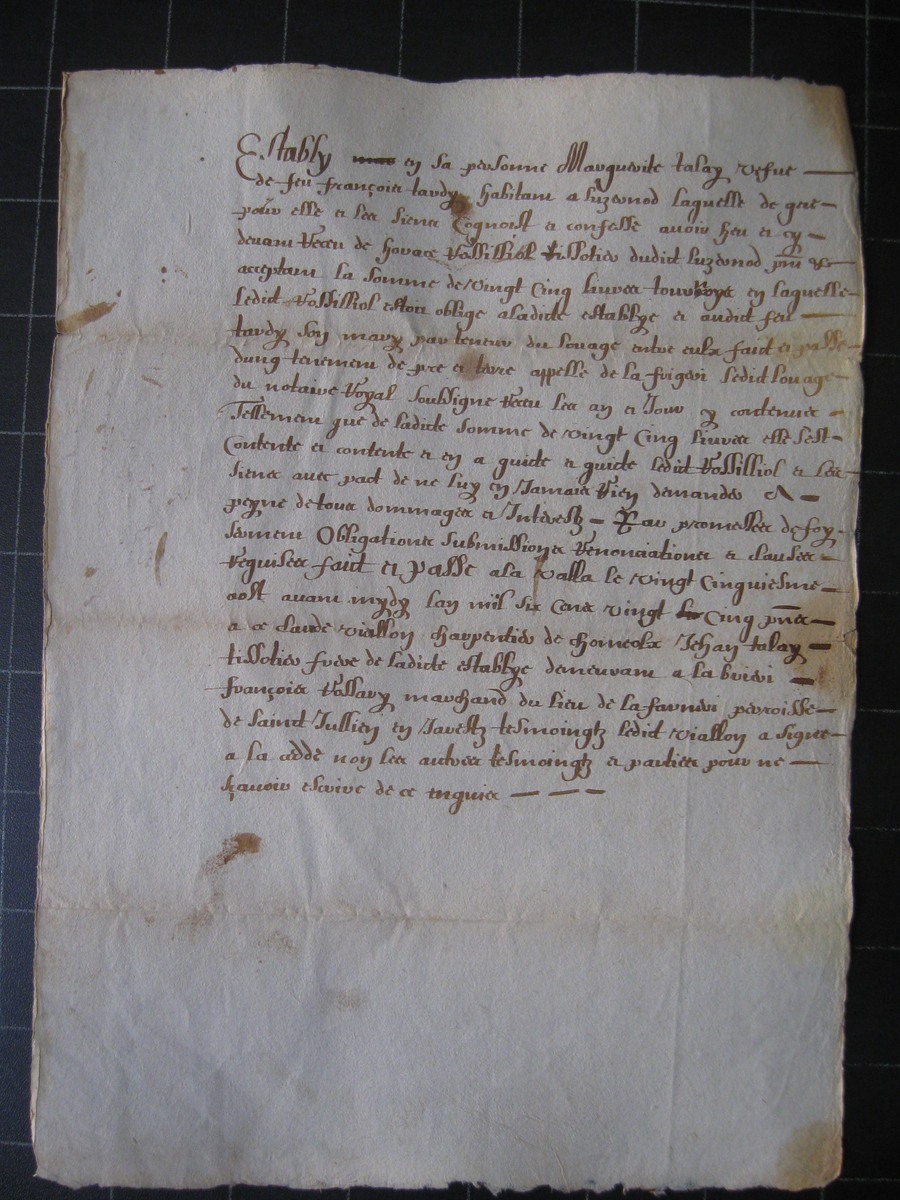 Establye en sa personne Marguerite talay vefue
de feu françois tardy habitant a luzernod laquelle de gre
pour elle et les siens Cognoist et confesse avoir heu et cy
devant Receu de horace Rossilliol tissotier dudict luzernod pnt et
acceptant la somme de vingt cinq livres tournoys en laquelle
ledict Rossilliol estoit oblige a ladicte establye et audict feu
tardy son mary par teneur du louage entre eulx faict et passe
dung tenement de pre et terre appelle de la frigeri ledict louage
du notaire Royal soubsigne Receu les an et Jour y contenus
Tellement que de ladicte somme de vingt Cinq livres elle s'est
Contente et contente et en a quicte et quicte ledict Rossilliol et les
siens avec pact de ne luy en Jamais Rien demander A
peyne de tous dommages et Interestz Par promesses de foy
serment Obligations submissions Renonciations et clauses
Requises faict et passe a la Valla le vingt cinquiesme
aost avant mydy lan mil six cens vingt Cinq pns
a ce claude viallon charpentier de chomeolx Jehan talay
tissotier frere de ladicte establye demeurant a la brieri
françois Rossary marchand du lieu de la farneri perroisse
de saint Jullien en Javestz tesmoingtz ledict viallon a signe
a la cedde non les autres tesmoingtz et parties pour ne
sçavoir escrire de ce enquis